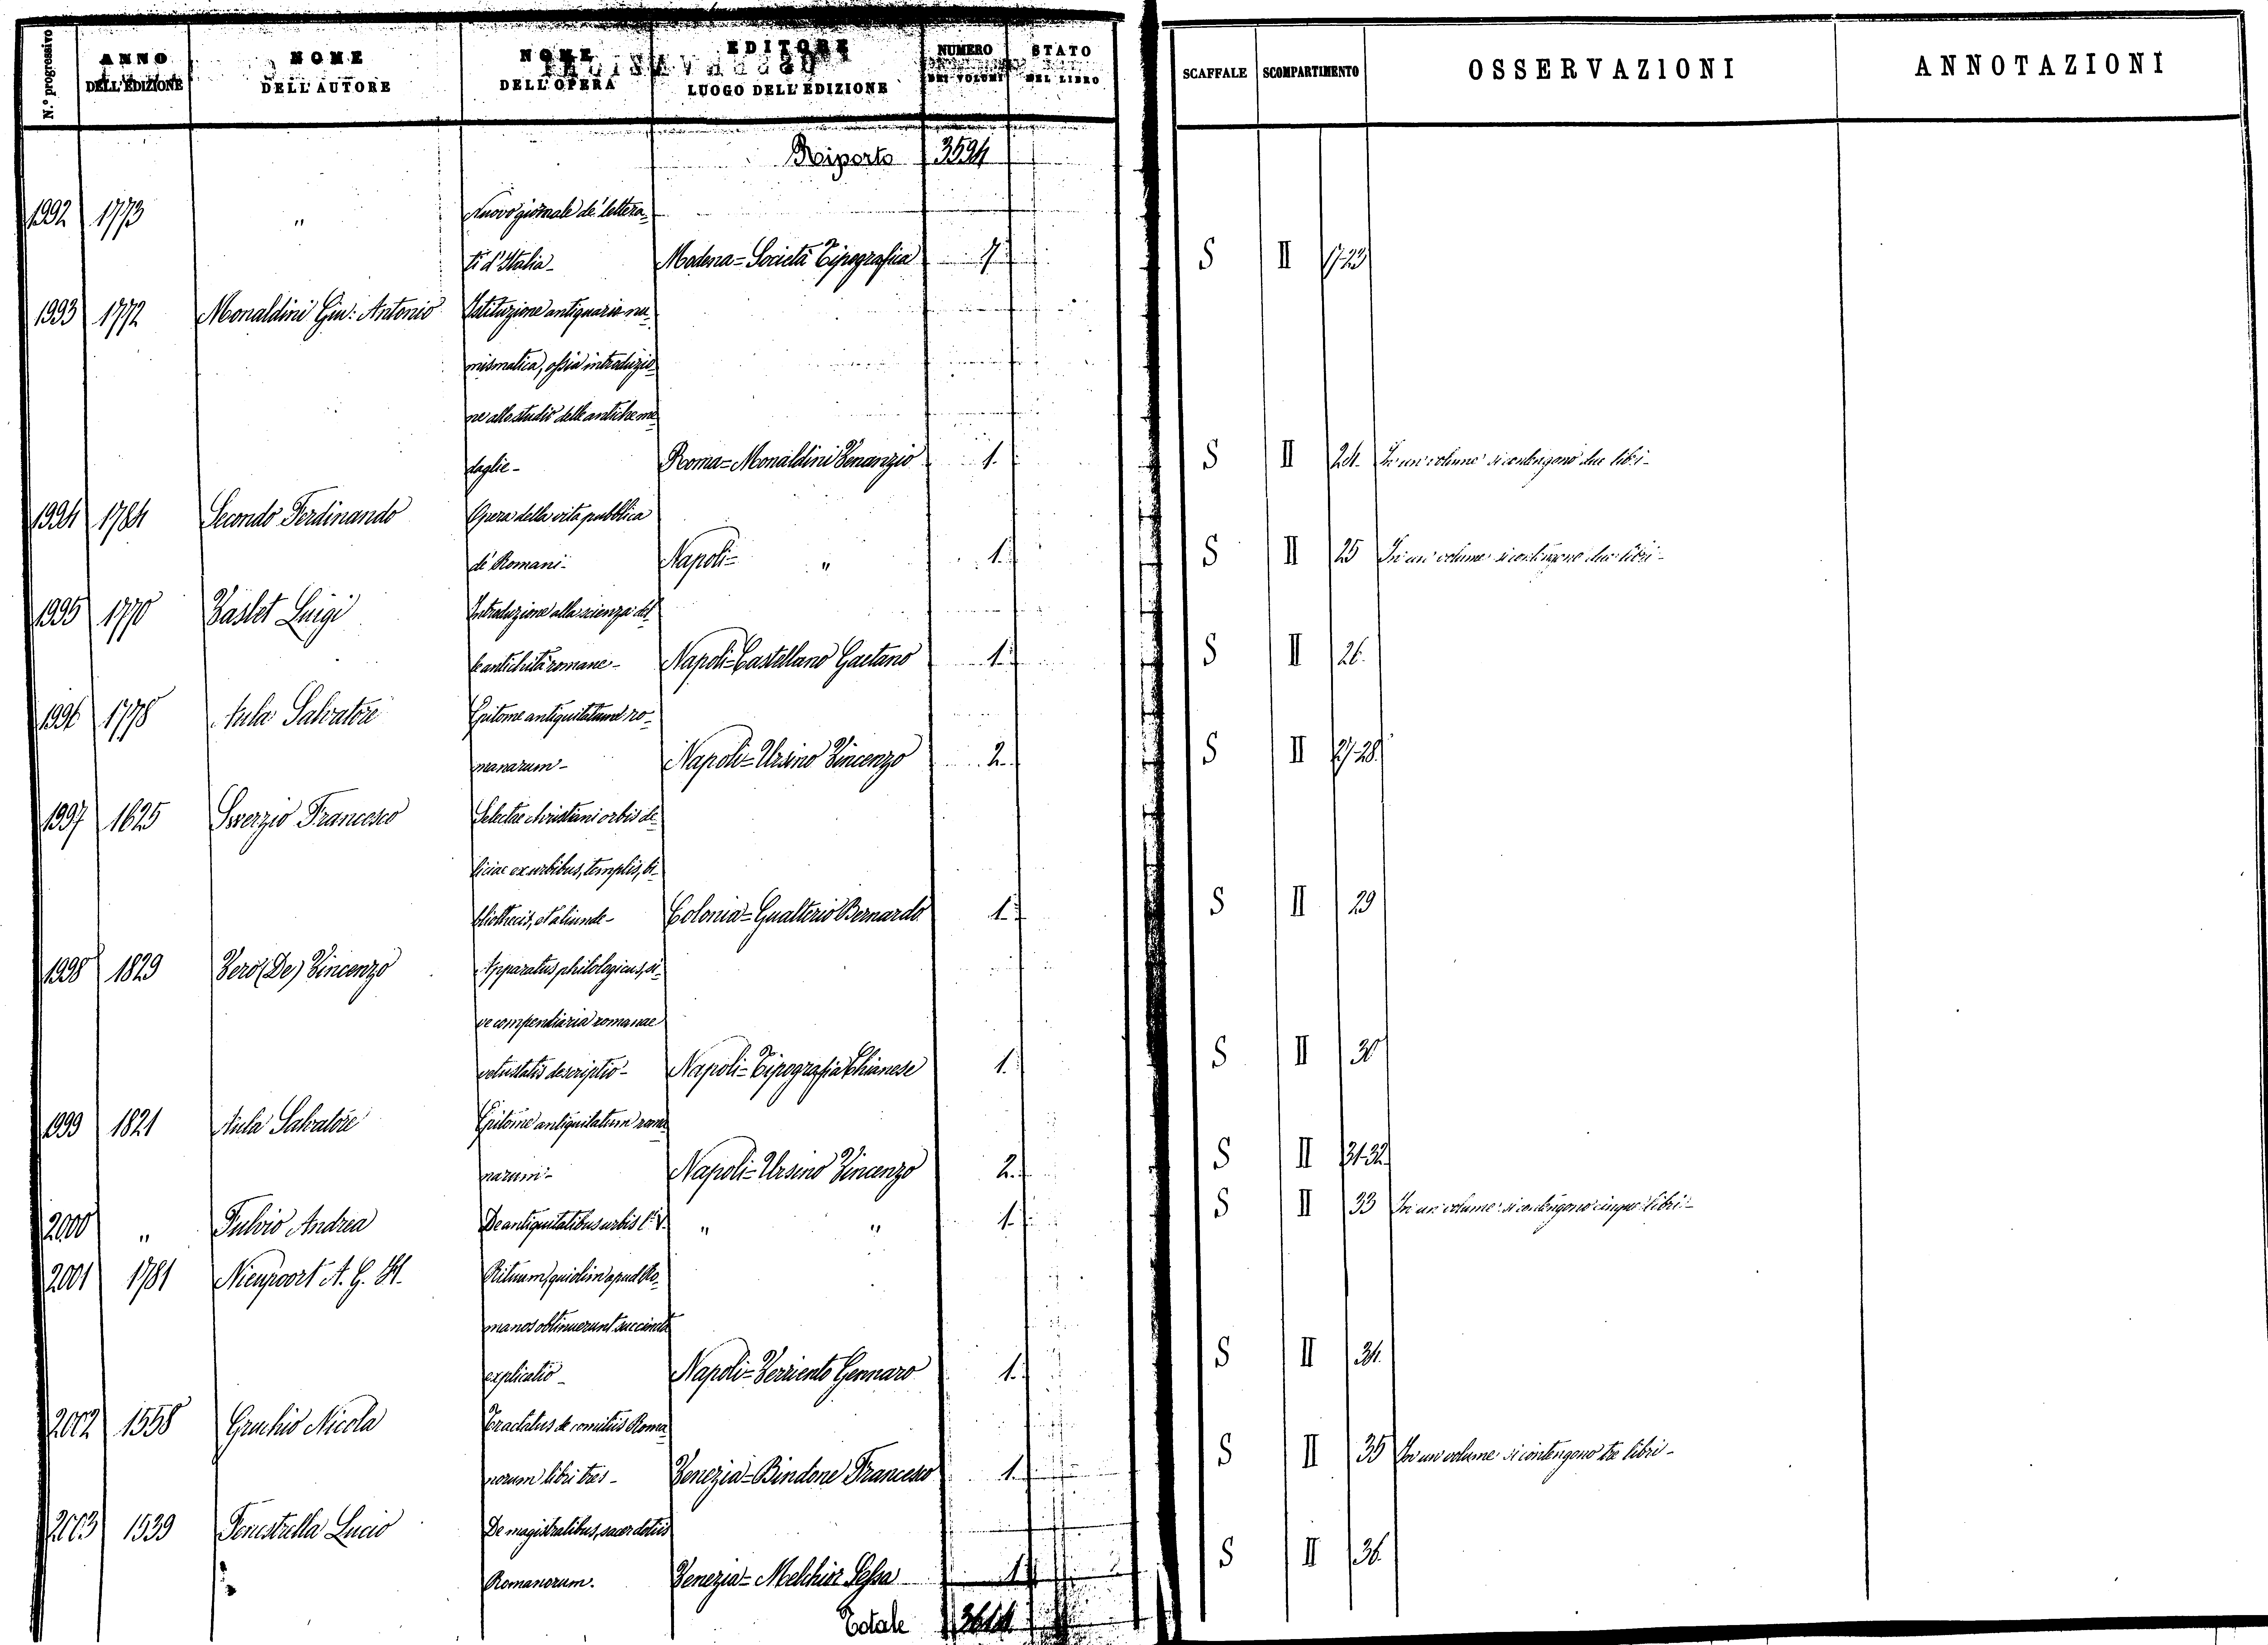 N.° progressivo | ANNO DELL'EDIZIONE | NOME DELL'AUTORE | NOME DELL'OPERA | EDITORE LUOGO DELL'EDIZIONE | NUMERO DEI VOLUMI | STATO DEL LIBRO | SCAFFALE | SCOMPARTIMENTO | OSSERVAZIONI | ANNOTAZIONI
Riporto 3594
1992 1773 " Nuovo giornale de' lettera-
ti d'Italia- Modena=Società Tipografica 7 S II 17-23
1993 1772 Monaldini Giu: Antonio Istituzione antiquario nu-
mismatica, ossia introduzio-
ne allo studio delle antiche me-
daglie- Roma=Monaldini Venanzio 1. S II 24. In un volume si contengono due libri-
1994 1784 Secondo Ferdinando Opera della vita pubblica
de' Romani- Napoli= " 1. S II 25 In un volume si contengono due libri-
1995 1770 Vaslet Luigi Introduzione alla scienza del-
le antichità romane- Napoli=Castellano Gaetano 1. S II 26.
1996 1778 Aula Salvatore Epitome antiquitatum ro-
manarum- Napoli=Ursino Vincenzo 2. S II 27-28.
1997 1625 Swerzio Francesco Selectae christiani orbis de-
liciae ex urbibus, templis, bi-
bliothecis, et aliunde- Colonia=Gualterio Bernardo 1. S II 29
1998 1829 Vero (De) Vincenzo Apparatus philologicus, si-
ve compendiaria romanae
vetustatis descriptio- Napoli=Tipografia Chianese 1. S II 30
1999 1821 Aula Salvatore Epitome antiquitatum roma-
narum- Napoli=Ursino Vincenzo 2. S II 31-32.
2000 " Fulvio Andrea De antiquitatibus urbis l. V. " " 1. S II 33 In un volume si contengono cinque libri-
2001 1781 Nieupoort A. G. H. Rituum, qui olim apud Ro-
manos obtinuerunt succincta
explicatio- Napoli=Verriento Gennaro 1. S II 34.
2002 1558 Gruchio Nicola Tractatus de comitiis Roma-
norum libri tres- Venezia=Bindone Francesco 1. S II 35 In un volume si contengono tre libri-
2003 1539 Fenestella Lucio De magistratibus, sacerdotiis
Romanorum. Venezia=Melchior Sessa 1 S II 36.
Totale 3614.